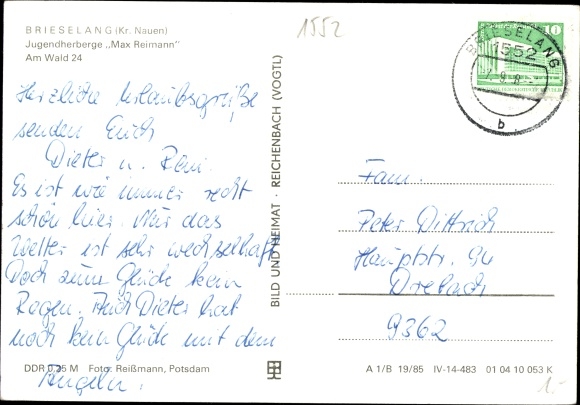 1552
BRIESELANG (Kr. Nauen)
Jugendherberge „Max Reimann"
Am Wald 24
Herzliche Urlaubsgrüße
senden Euch
Dieter u. Reni.
Es ist wie immer recht
schön hier. Nur das
Wetter ist sehr wechselhaft
Doch zum Glück kein
Regen. Auch Dieter hat
noch kein Glück mit dem
Angeln.
DDR 0,25 M Foto: Reißmann, Potsdam
BILD UND HEIMAT · REICHENBACH (VOGTL)
BRIESELANG
1552
b
10
Fam.
Peter Dittrich
Hauptstr. 94
Drebach
9362
A 1/B 19/85 IV-14-483 01 04 10 053 K
1.-